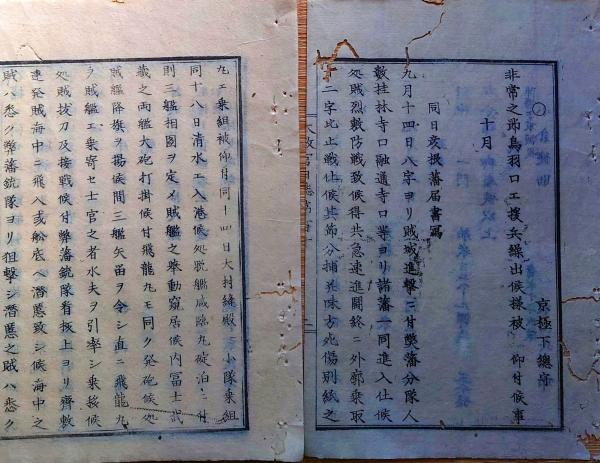 京極下總守
非常之節鳥羽口エ援兵繰出候樣被 仰付候事
十月
同日安濃藩届書寫
九月十四日八字ヨリ賊城進撃ニ付弊藩分隊人
數桂林寺口融通寺口等ヨリ諸藩一同進入仕候
処賊烈敷防戰致候得共急速進闘終ニ外郭乘取
十二字比止戰仕候其節分捕并味方死傷別紙之
太政官日誌第百
九エ乘組被仰付同十四日大村縫殿一小隊乘組
同十八日清水エ入港候処脱艦咸臨丸碇泊ニ付
則三艦相圖ヲ定メ賊艦之舉動窺居候内冨士武
藏之両艦大砲打掛候付飛龍丸モ同ク発砲候処
賊艦降旗ヲ揚候間三艦矢留ヲ令シ直ニ飛龍丸
ヲ賊艦エ乘寄セ士官之者水夫ヲ引率シ乘移候
処賊抜刀及接戰候付弊藩銃隊看板上ヨリ齊敷
連発賊海中ニ飛入或船底ヘ潛匿致シ候海中之
賊ハ悉ク弊藩銃隊ヨリ狙撃シ潛匿之賊ハ悉ク